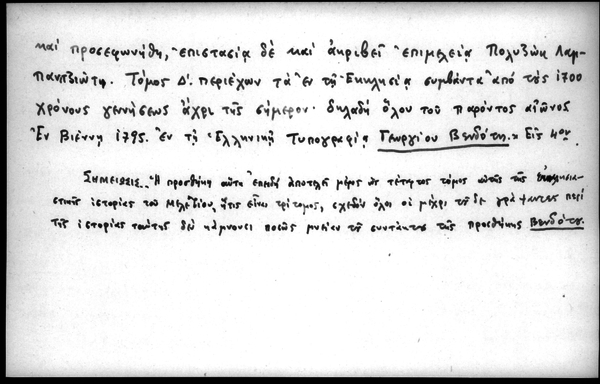 καὶ προσεφωνήθη, ἐπιστασίᾳ δὲ καὶ ἀκριβεῖ ἐπιμελείᾳ Πολυζώη Λαμ-
πανιτζιώτη. Τόμος Δ'. περιέχων τὰ ἐν τῇ Ἐκκλησίᾳ συμβάντα ἀπὸ τῆς 1700
χρόνους γεννήσεως ἄχρι τῆς σήμερον. δηλαδὴ ὅλου τοῦ παρόντος αἰῶνος
Ἐν Βιέννῃ 1795. Ἐν τῇ Ἑλληνικῇ Τυπογραφίᾳ Γεωργίου Βενδότη. Εἰς 4ον.
ΣΗΜΕΙΩΣΙΣ. Ἡ προσθήκη αὕτη ἐπειδὴ ἀποτελεῖ μέρος ὡς τέταρτος τόμος αὐτῆς τῆς ἐκκλησια-
στικῆς ἱστορίας τοῦ Μελετίου, ἥτις εἶναι τρίτομος, σχεδὸν ὅλοι οἱ μέχρι τοῦδε γράψαντες περὶ
τῆς ἱστορίας ταύτης δὲν κάμνουσι ποσῶς μνείαν τοῦ συντάκτου τῆς προσθήκης Βενδότου.